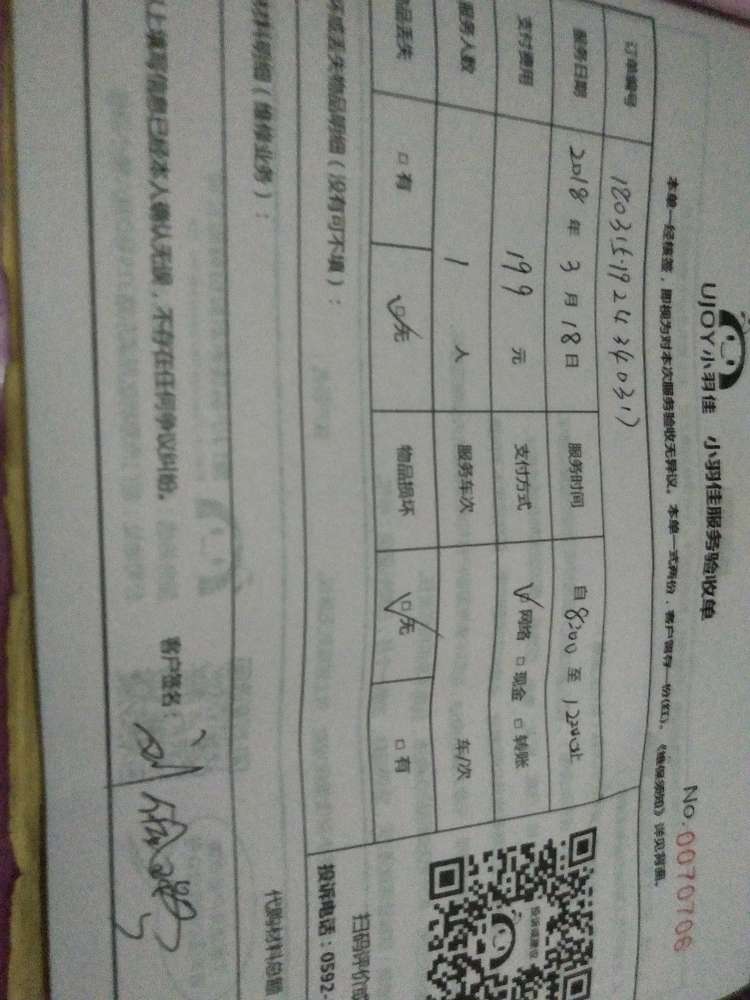 UJOY小羽佳 小羽佳服务验收单
No.0070706
本单一经核签，即视为对本次服务验收无异议。本单一式两份，客户留存一份(红)。《维保须知》详见背面。
订单编号 180315192434031
服务日期 2018年3月18日 服务时间 自8:00至12:00止
支付费用 199元 支付方式 网络 □现金 □转账
服务人数 1人 服务车次 车/次
物品丢失 □有 □无 物品损坏 □无 □有
坏或丢失物品明细（没有可不填）：
材料明细（维修业务）：
代购材料总额
上填写信息已经本人确认无误，不存在任何争议纠纷。 客户签名：
投诉或建议
扫码评价或
投诉电话：0592-